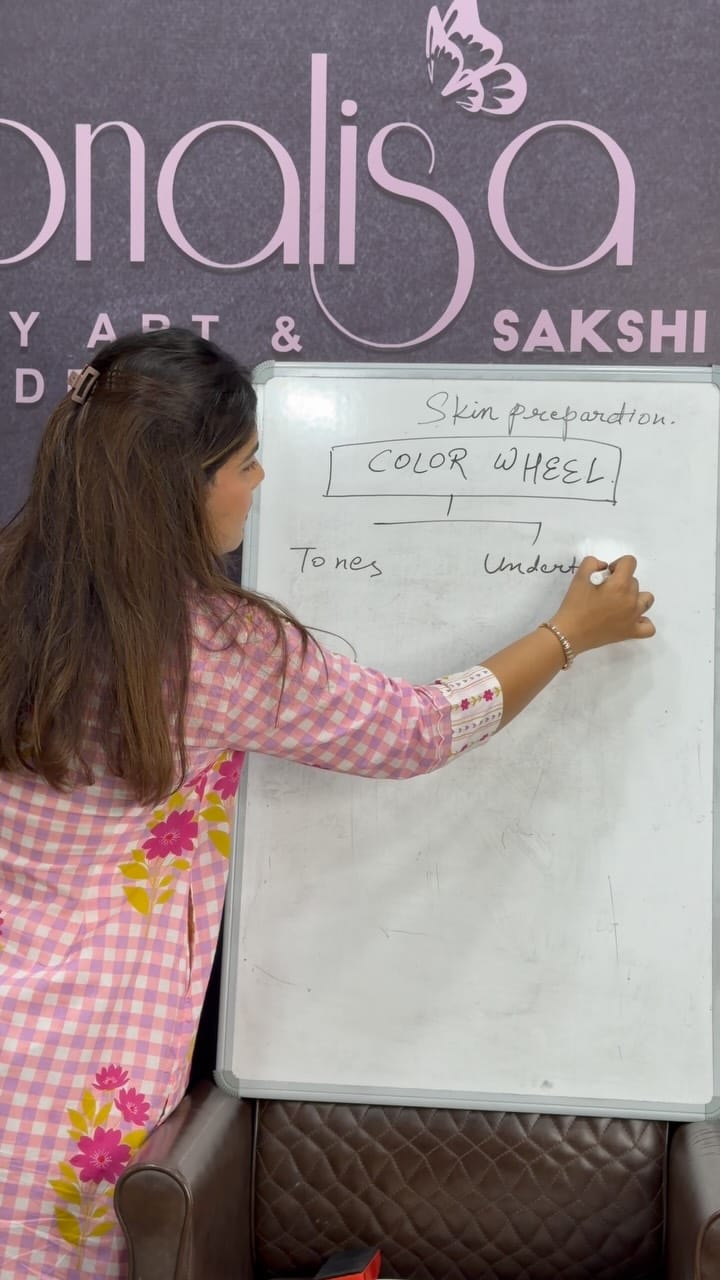 onalisa
Y ART & SAKSHI
D
Skin prepartion.
COLOR WHEEL
Tones Undert